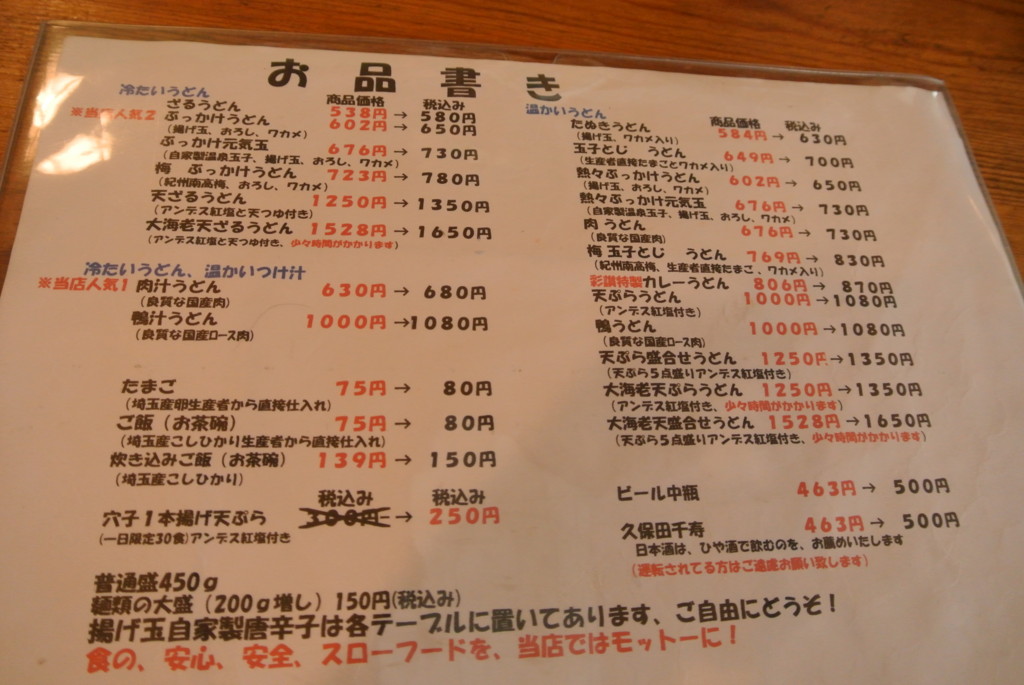 お品書き
冷たいうどん
商品価格 税込み
ざるうどん 538円 → 580円
※当店人気2 ぶっかけうどん 602円 → 650円
(揚げ玉、おろし、ワカメ)
ぶっかけ元気玉 676円 → 730円
(自家製温泉玉子、揚げ玉、おろし、ワカメ)
梅 ぶっかけうどん 723円 → 780円
(紀州南高梅、おろし、ワカメ)
天ざるうどん 1250円 → 1350円
(アンデス紅塩と天つゆ付き)
大海老天ざるうどん 1528円 → 1650円
(アンデス紅塩と天つゆ付き、少々時間がかかります)
冷たいうどん、温かいつけ汁
※当店人気1 肉汁うどん 630円 → 680円
(良質な国産肉)
鴨汁うどん 1000円 → 1080円
(良質な国産ロース肉)
たまご 75円 → 80円
(埼玉産卵生産者から直接仕入れ)
ご飯(お茶碗) 75円 → 80円
(埼玉産こしひかり生産者から直接仕入れ)
炊き込みご飯(お茶碗) 139円 → 150円
(埼玉産こしひかり)
税込み 税込み
穴子1本揚げ天ぷら 300円 → 250円
(一日限定30食)アンデス紅塩付き
温かいうどん
商品価格 税込み
たぬきうどん 584円 → 630円
(揚げ玉、ワカメ入り)
玉子とじ うどん 649円 → 700円
(生産者直接たまごとワカメ入り)
熱々ぶっかけうどん 602円 → 650円
(揚げ玉、おろし、ワカメ)
熱々ぶっかけ元気玉 676円 → 730円
(自家製温泉玉子、揚げ玉、おろし、ワカメ)
肉うどん 676円 → 730円
(良質な国産肉)
梅 玉子とじ うどん 769円 → 830円
(紀州南高梅、生産者直接たまご、ワカメ入り)
彩讃特製カレーうどん 806円 → 870円
天ぷらうどん 1000円 → 1080円
(アンデス紅塩付き)
鴨うどん 1000円 → 1080円
(良質な国産ロース肉)
天ぷら盛合せうどん 1250円 → 1350円
(天ぷら5点盛りアンデス紅塩付き)
大海老天ぷらうどん 1250円 → 1350円
(アンデス紅塩付き、少々時間がかかます)
大海老天盛合せうどん 1528円 → 1650円
(天ぷら5点盛りアンデス紅塩付き、少々時間がかかます)
ビール中瓶 463円 → 500円
久保田千寿 463円 → 500円
日本酒は、ひや酒で飲むのを、お薦めいたします
(運転されてる方はご遠慮お願い致します)
普通盛450g
麺類の大盛(200g増し)150円(税込み)
揚げ玉自家製唐辛子は各テーブルに置いてあります、ご自由にどうぞ!
食の、安心、安全、スローフードを、当店ではモットーに!